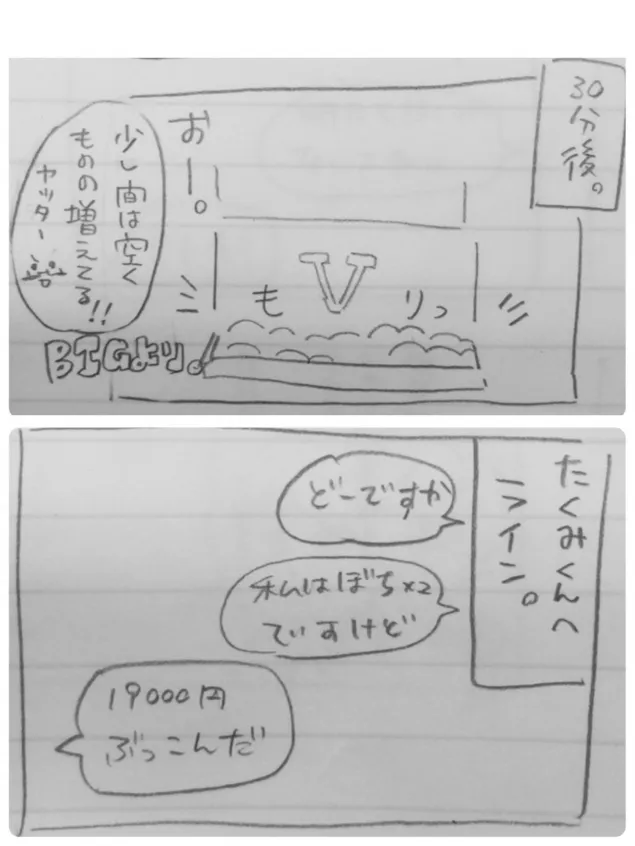 30分後。
おー。
少し間は空く
ものの増えてる!!
ヤッター
V
もりっ
BIGより。
たくみくんへ
ライン。
どーですか
私はぼち×2
でいすけど
19000円
ぶっこんだ